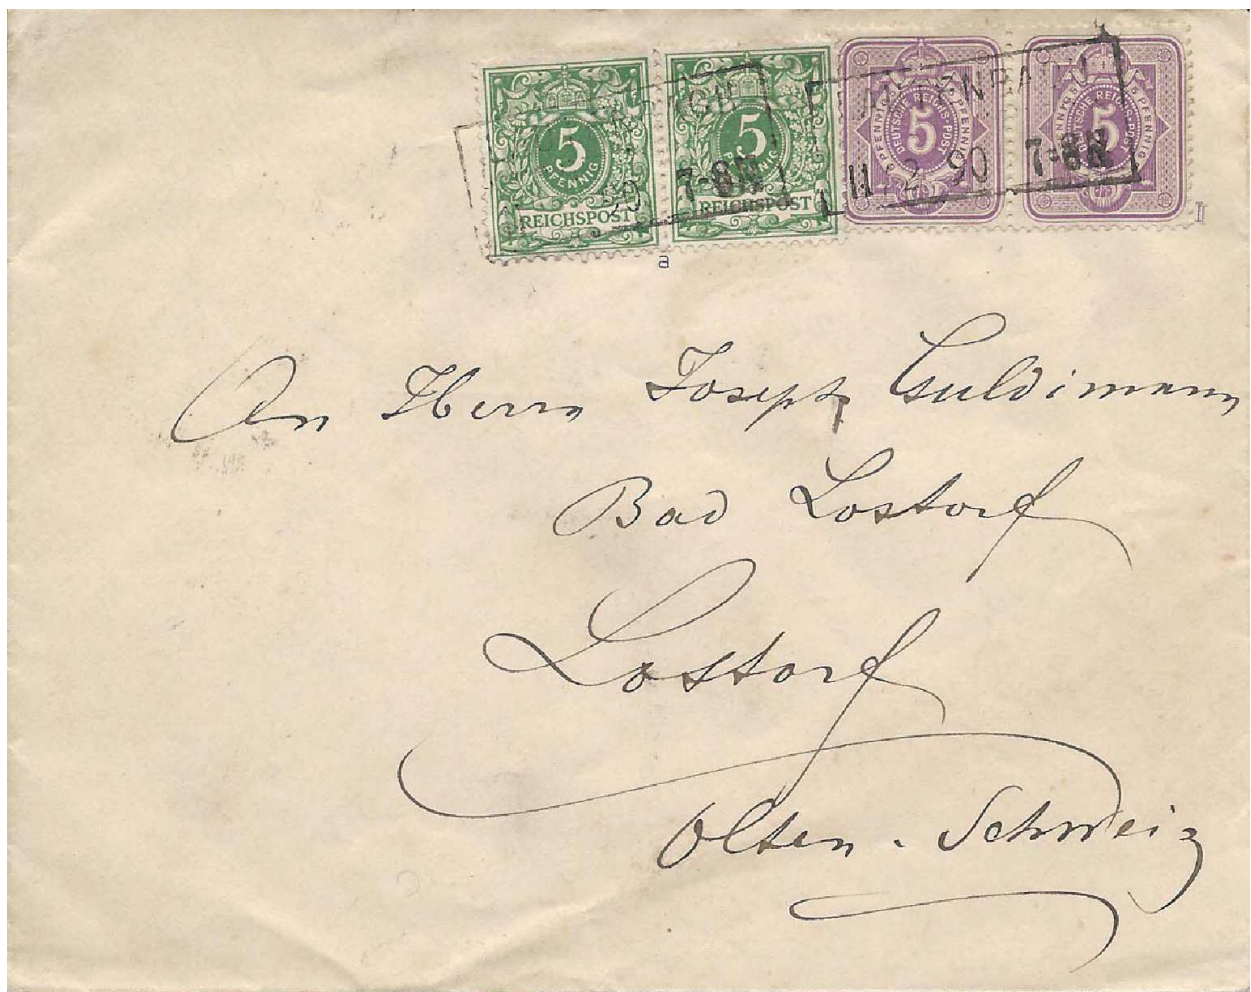 5 PFENNIG REICHSPOST
5 PFENNIG REICHSPOST
PFENNIG 5 PFENNIG DEUTSCHE REICHS-POST
PFENNIG 5 PFENNIG DEUTSCHE REICHS-POST
90 7-8N
11.2 90 7-8N
a
I
An Herrn Joseph Guldimann
Bad Lostorf
Lostorf
Olten. Schweiz